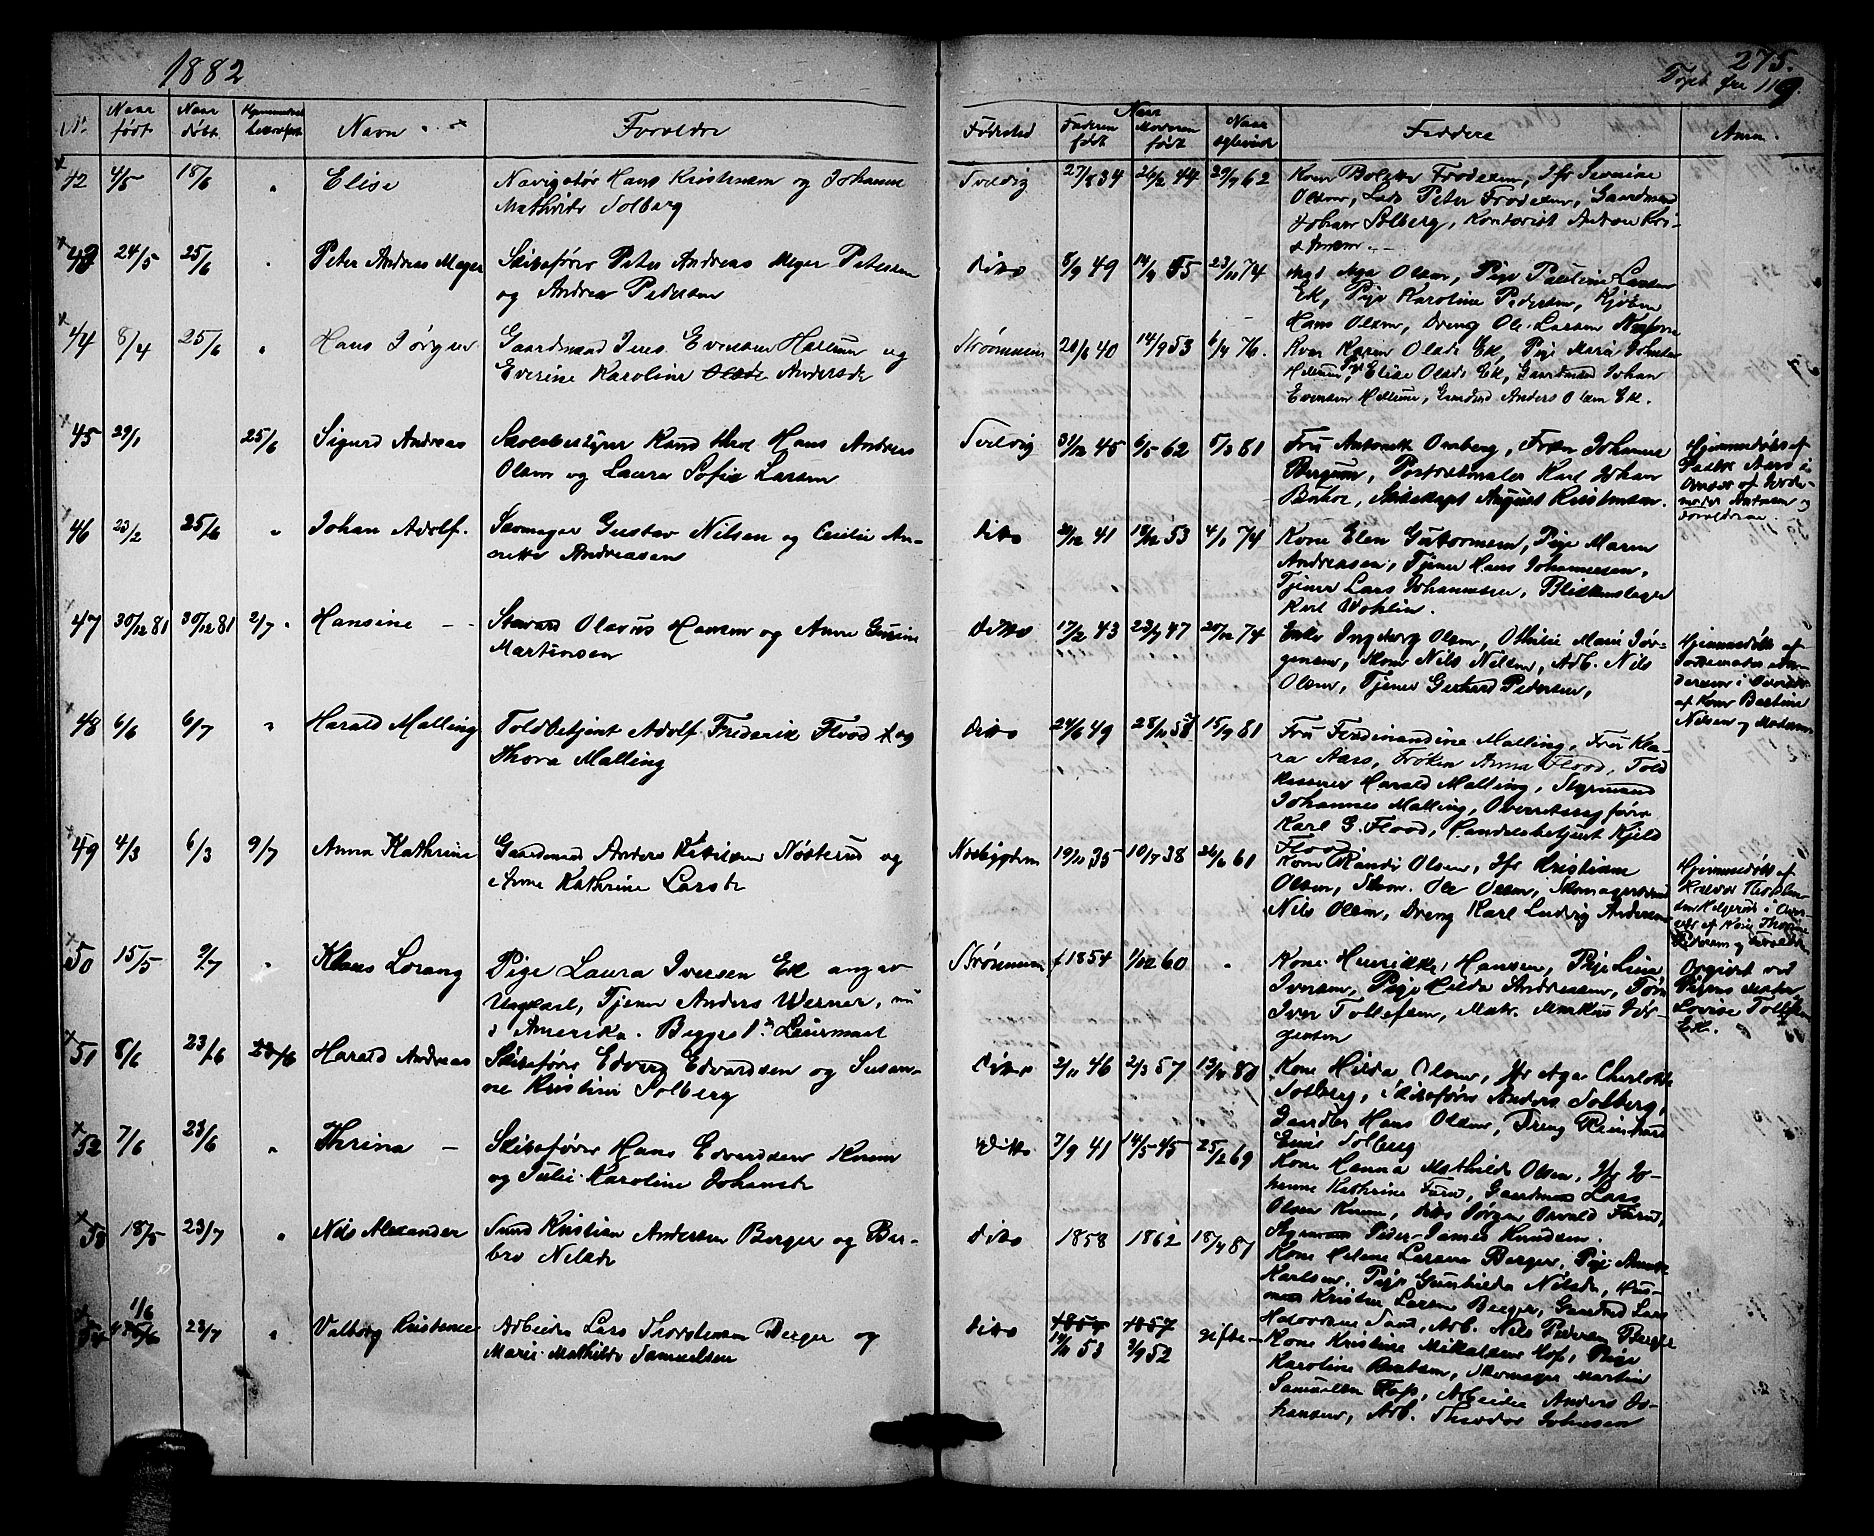 1882
275.
119
No
Naar født
Naar døbt
Navn
Forældre
Fødested
Naar
Faderen født
Moderen født
Naar ægteviet
Faddere
Anm.
42 4/5 18/6 " Elise
Navigatør Hans Kristensen og Johanne
Mathilde Solberg
Svelvig 27/8 34 26/2 44 29/9 62
Kone Bolette Frodesen, Jfr Severine
Olsen, Lods Peter Frodesen, Gaardmand
Johan Solberg, Kontorist Anton Kri-
stensen.
43 24/5 25/6 Peter Andreas Meyer
Skibsfører Peter Andreas Meyer Petersen
og Andrea Pedersen
Ditto 8/9 49 14/9 55 23/10 74
Mad. Aga Olsen, Pige Pauline Larsen
Ek, Pige Karoline Pedersen, Kjøbm
Hans Olsen, Dreng Ole Larsen
44 8/4 25/6 " Hans Jørgen
Gaardmand Iver Evensen Hellum og
Everine Karoline Andersdr
Strømmen 20/6 40 14/9 53 6/4 76.
Kone Karen Olsdr Ek, Pige Maria Johnsen
Hellum, Pige Elise Olsdr Ek, Gaardmand Johan
Evensen Hellum, Gaardmd Anders Olsen Ek.
45 29/1 25/6 Sigurd Andreas
Skolebestyrer Kand. theol. Hans Andreas
Olsen og Laura Sofie Larsen
Svelvig 31/12 45 6/5 62 5/3 81
Fru Antonette Omberg, Frøken Johanne
Bergum, Postexpeditør Karl Johan
Skibskapt August Kristensen.
Hjemmedøbt af
Forældrene.
46 23/2 25/6 " Johan Adolf.
Skomager Gustav Nilsen og Cecilie An-
nette Andreasen
Ditto 21/12 41 18/12 53 4/1 74
Kone Elen Guttormsen, Pige Maren
Andreasen, Tjener Hans Johannesen,
Tjener Lars Johannesen, Blikkenslager
Karl Wohlin.
47 30/12 81 30/12 81 2/7 " Hansine
Steward Olavus Hansen og Anne Gurine
Martinsen
Ditto 17/2 43 23/7 47 28/12 74
Enke Ingeborg Olsen, Othilie Marie Jør-
gensen, Kone Nils Nilsen, Arb. Nils
Olsen, Tjener Gerhard Pedersen,
Hjemmedøbt af
Jordemoder An-
dersen i Overvær
af Kone Bertine
Nilsen og Moderen
48 6/6 6/7 " Harald Malling
Toldbetjent Adolf Frederik Flood og
Thora Malling
Ditto 24/6 49 28/10 58 15/9 81
Fru Ferdinandine Malling, Fru Kla-
ra Aars, Frøken Anna Flood, Told
kasserer Harald Malling, Styrmand
Johannes Malling, Overretssagfører
Karl G. Flood, Handelsbetjent Kjeld
Flood
49 4/3 6/3 9/7 Anna Kathrine
Gaardmand Anders Ketilsen Nøsterud og
Anne Kathrine Larsdr
Nesbygden 19/11 35 10/7 38 26/12 61
Kone Randi Olsen, Jfr Kristiane
Olsen, Skom. Ole Olsen, Skomagersvend
Nils Olsen, Dreng Karl Ludvig Andersen
Hjemmedøbt af
Pedersen og Forældre
50 15/5 9/7 " Klaus Lorang
Pige Laura Iversen Ek ang av
Ungkarl, Tjener Anders Werner, nu
i Amerika. Begges 1ste Leiermaal
Strømmen f 1854 1/12 60 "
Kone Henrikke Hansen, Pige Lina
Iversen, Pige Hilda Andreasen, Tøm
Iver Tollefsen, Matr. Markus Jør-
gensen
Opgivet ved
Pigens Moder
Lovise Tollefsen
Ek.
51 8/6 23/6 Harald Andreas
Skibsfører Edvard Edvardsen og Susan-
ne Kristine Solberg
Ditto 2/11 46 2/3 57 13/4 80
Kone Hilda Olsen, Jfr Aga Charlotte
Solberg, Skibsfører Anders Solberg,
Gaardbr Hans Olsen, Dreng Reinhard
Emil Solberg
52 7/6 23/6 " Thrina
Skibsfører Hans Edvardsen Knem
og Julie Karoline Johansdr
Ditto 7/9 41 14/5 45 25/12 69
Kone Hanna Mathilde Olsen, Jfr Jo-
hanne Kathrine Færø, Gaardmand Lars
Olsen Knem, Ditto Jørgen Osvald Færø,
Styrmand Peder James Knudsen.
53 18/5 23/7 " Nils Alexander
Smed Kristian Andersen Berger og Bar-
bro Nilsdr
Ditto 1858 1862 18/4 81
Kone Helene Larsen Berger, Pige Anne
Karlsen, Pige Gunhilda Nilsdr, Hus-
mand Kristen Larsen Berger, Gaardmd Lars
Halvorsen Sand, Arb. Nils Pedersen Berger
54 1/6 23/7 " Valborg Kristence
Arbeider Lars Thorstensen Berger og
Marie Mathilde Samuelsen
Ditto 1857 1857 gifte
53 3/9 52
Kone Kristine Mikalsen Hof, Pige
Karoline Berntsen, Skomager Martin
Samuelsen Foss, Arbeider Anders Jo-
hansen, Arb. Theodor Johnsen